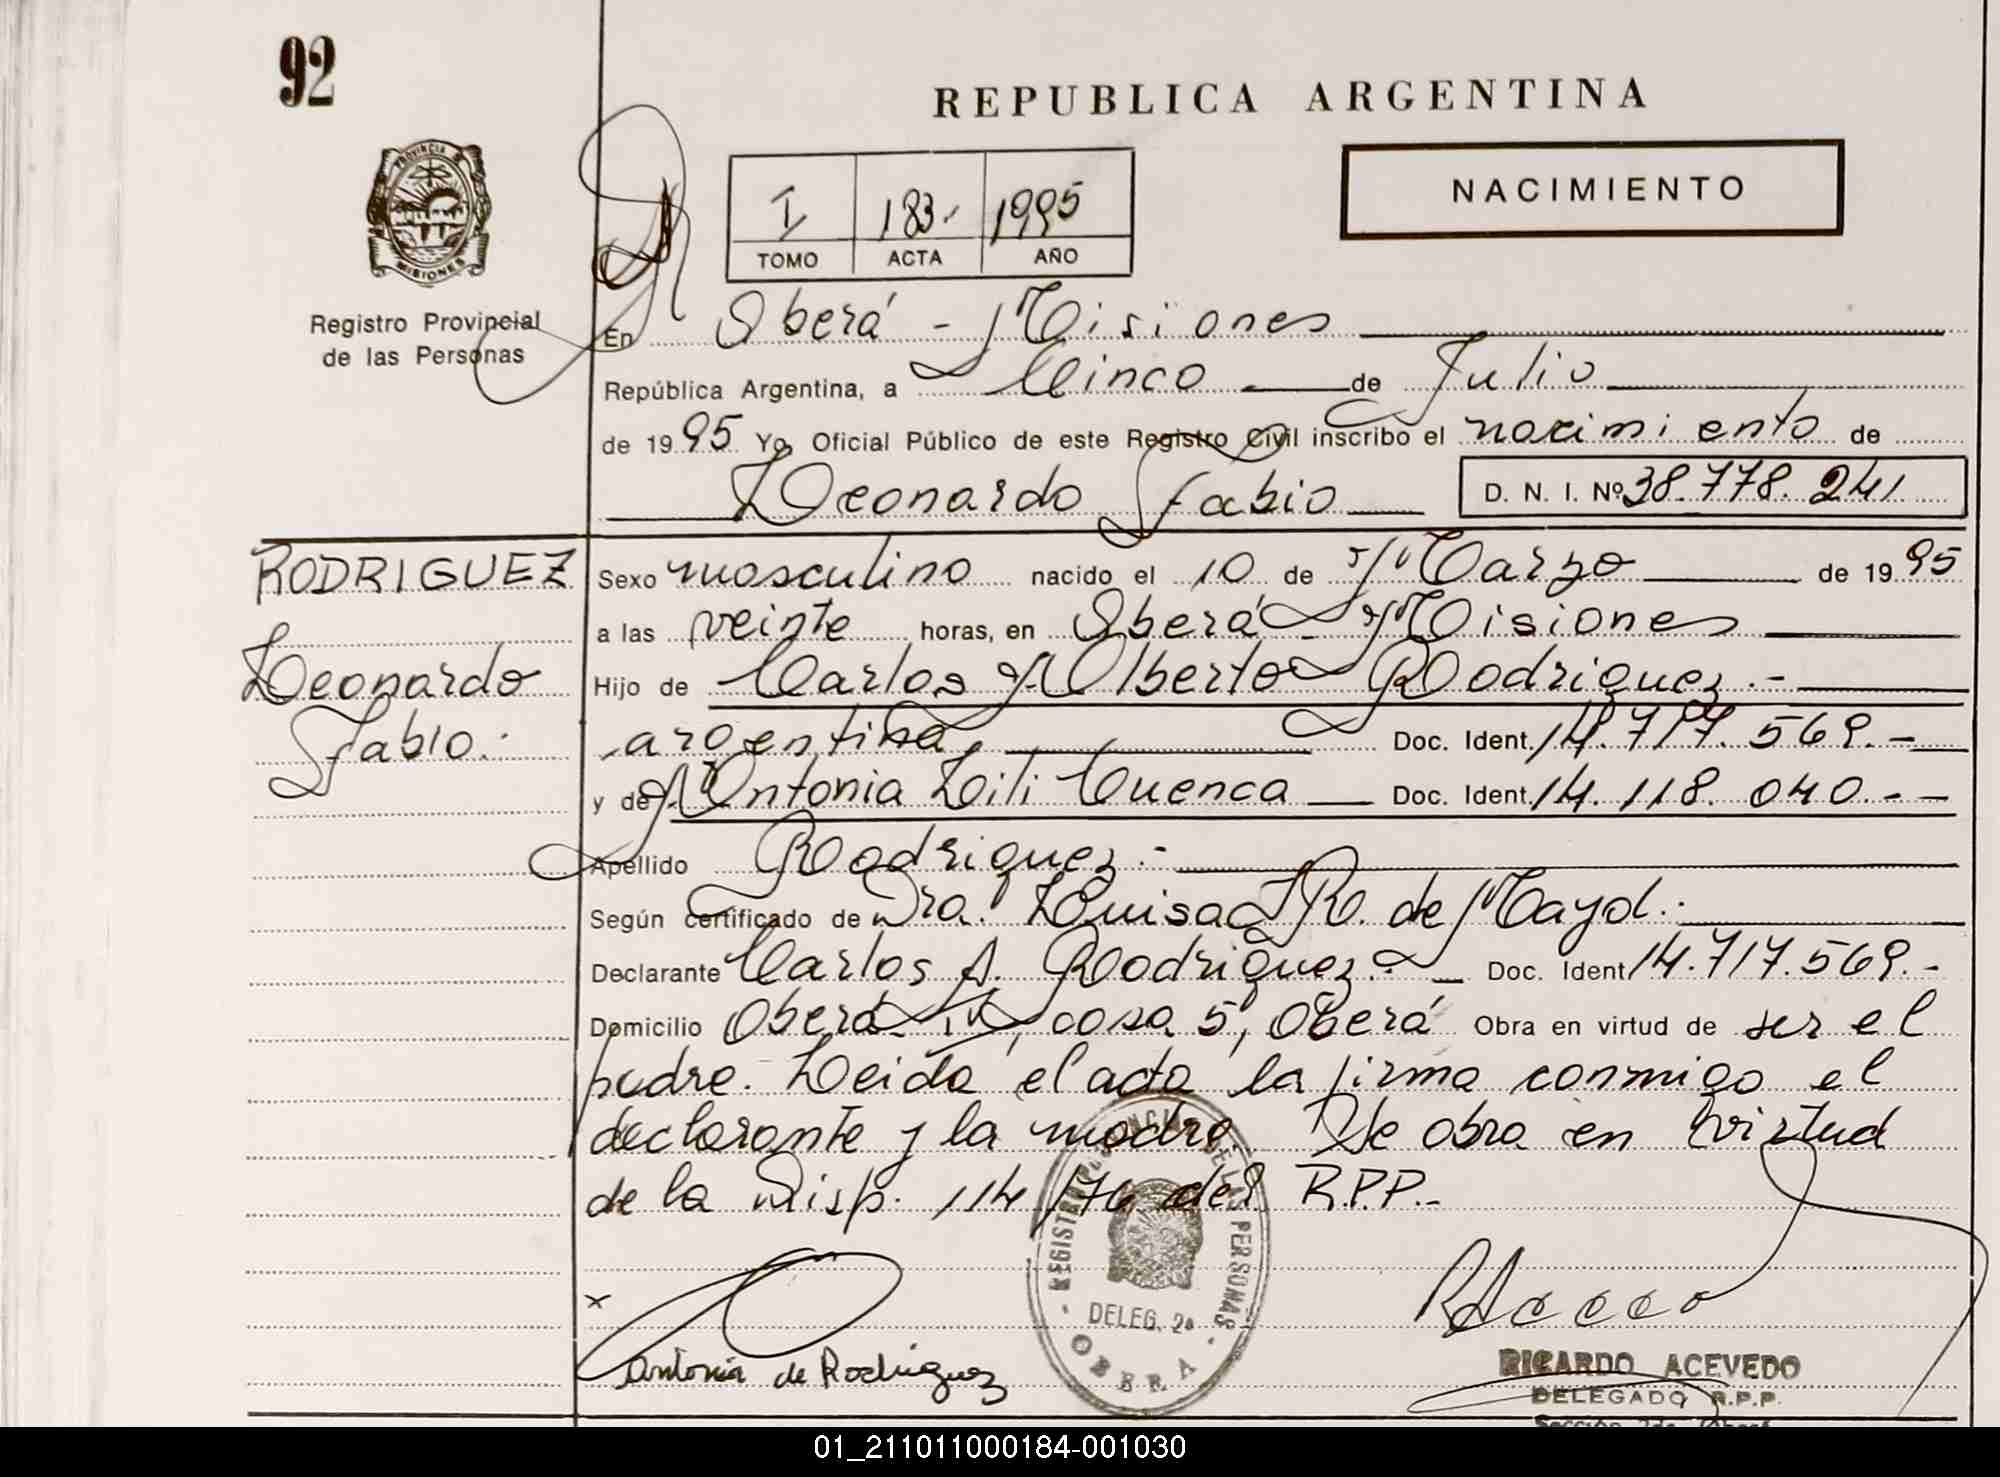 92
REPUBLICA ARGENTINA
PROVINCIA D
MISIONES
Registro Provincial
de las Personas
I 183- 1995
TOMO ACTA AÑO
NACIMIENTO
En Oberá - Misiones
República Argentina, a Cinco de Julio
de 1995 Yo, Oficial Público de este Registro Civil inscribo el nacimiento de
Leonardo Fabio D. N. I. Nº 38.778.241
RODRIGUEZ
Leonardo
Fabio.-
Sexo masculino nacido el 10 de Marzo de 1995
a las veinte horas, en Oberá - Misiones
Hijo de Carlos Alberto Rodriguez.-
argentina, Doc. Ident. 14.717.569.-
y de Antonia Lili Cuenca Doc. Ident. 14.118.040.-
Apellido Rodriguez.-
Según certificado de Dra. Luisa R. de Mayol.-
Declarante Carlos A. Rodriguez.- Doc. Ident 14.717.569.-
Domicilio Oberá IV, casa 5, Oberá Obra en virtud de ser el
padre. Leida el acta la firma conmigo el
declarante y la madre. Se obra en virtud
de la Disp. 114/76 del R.P.P.-
REGISTRO PROVINCIAL DE LAS PERSONAS
DELEG. 2a
OBERA
x
Antonia de Rodriguez
RICARDO ACEVEDO
DELEGADO R.P.P.
01_211011000184-001030